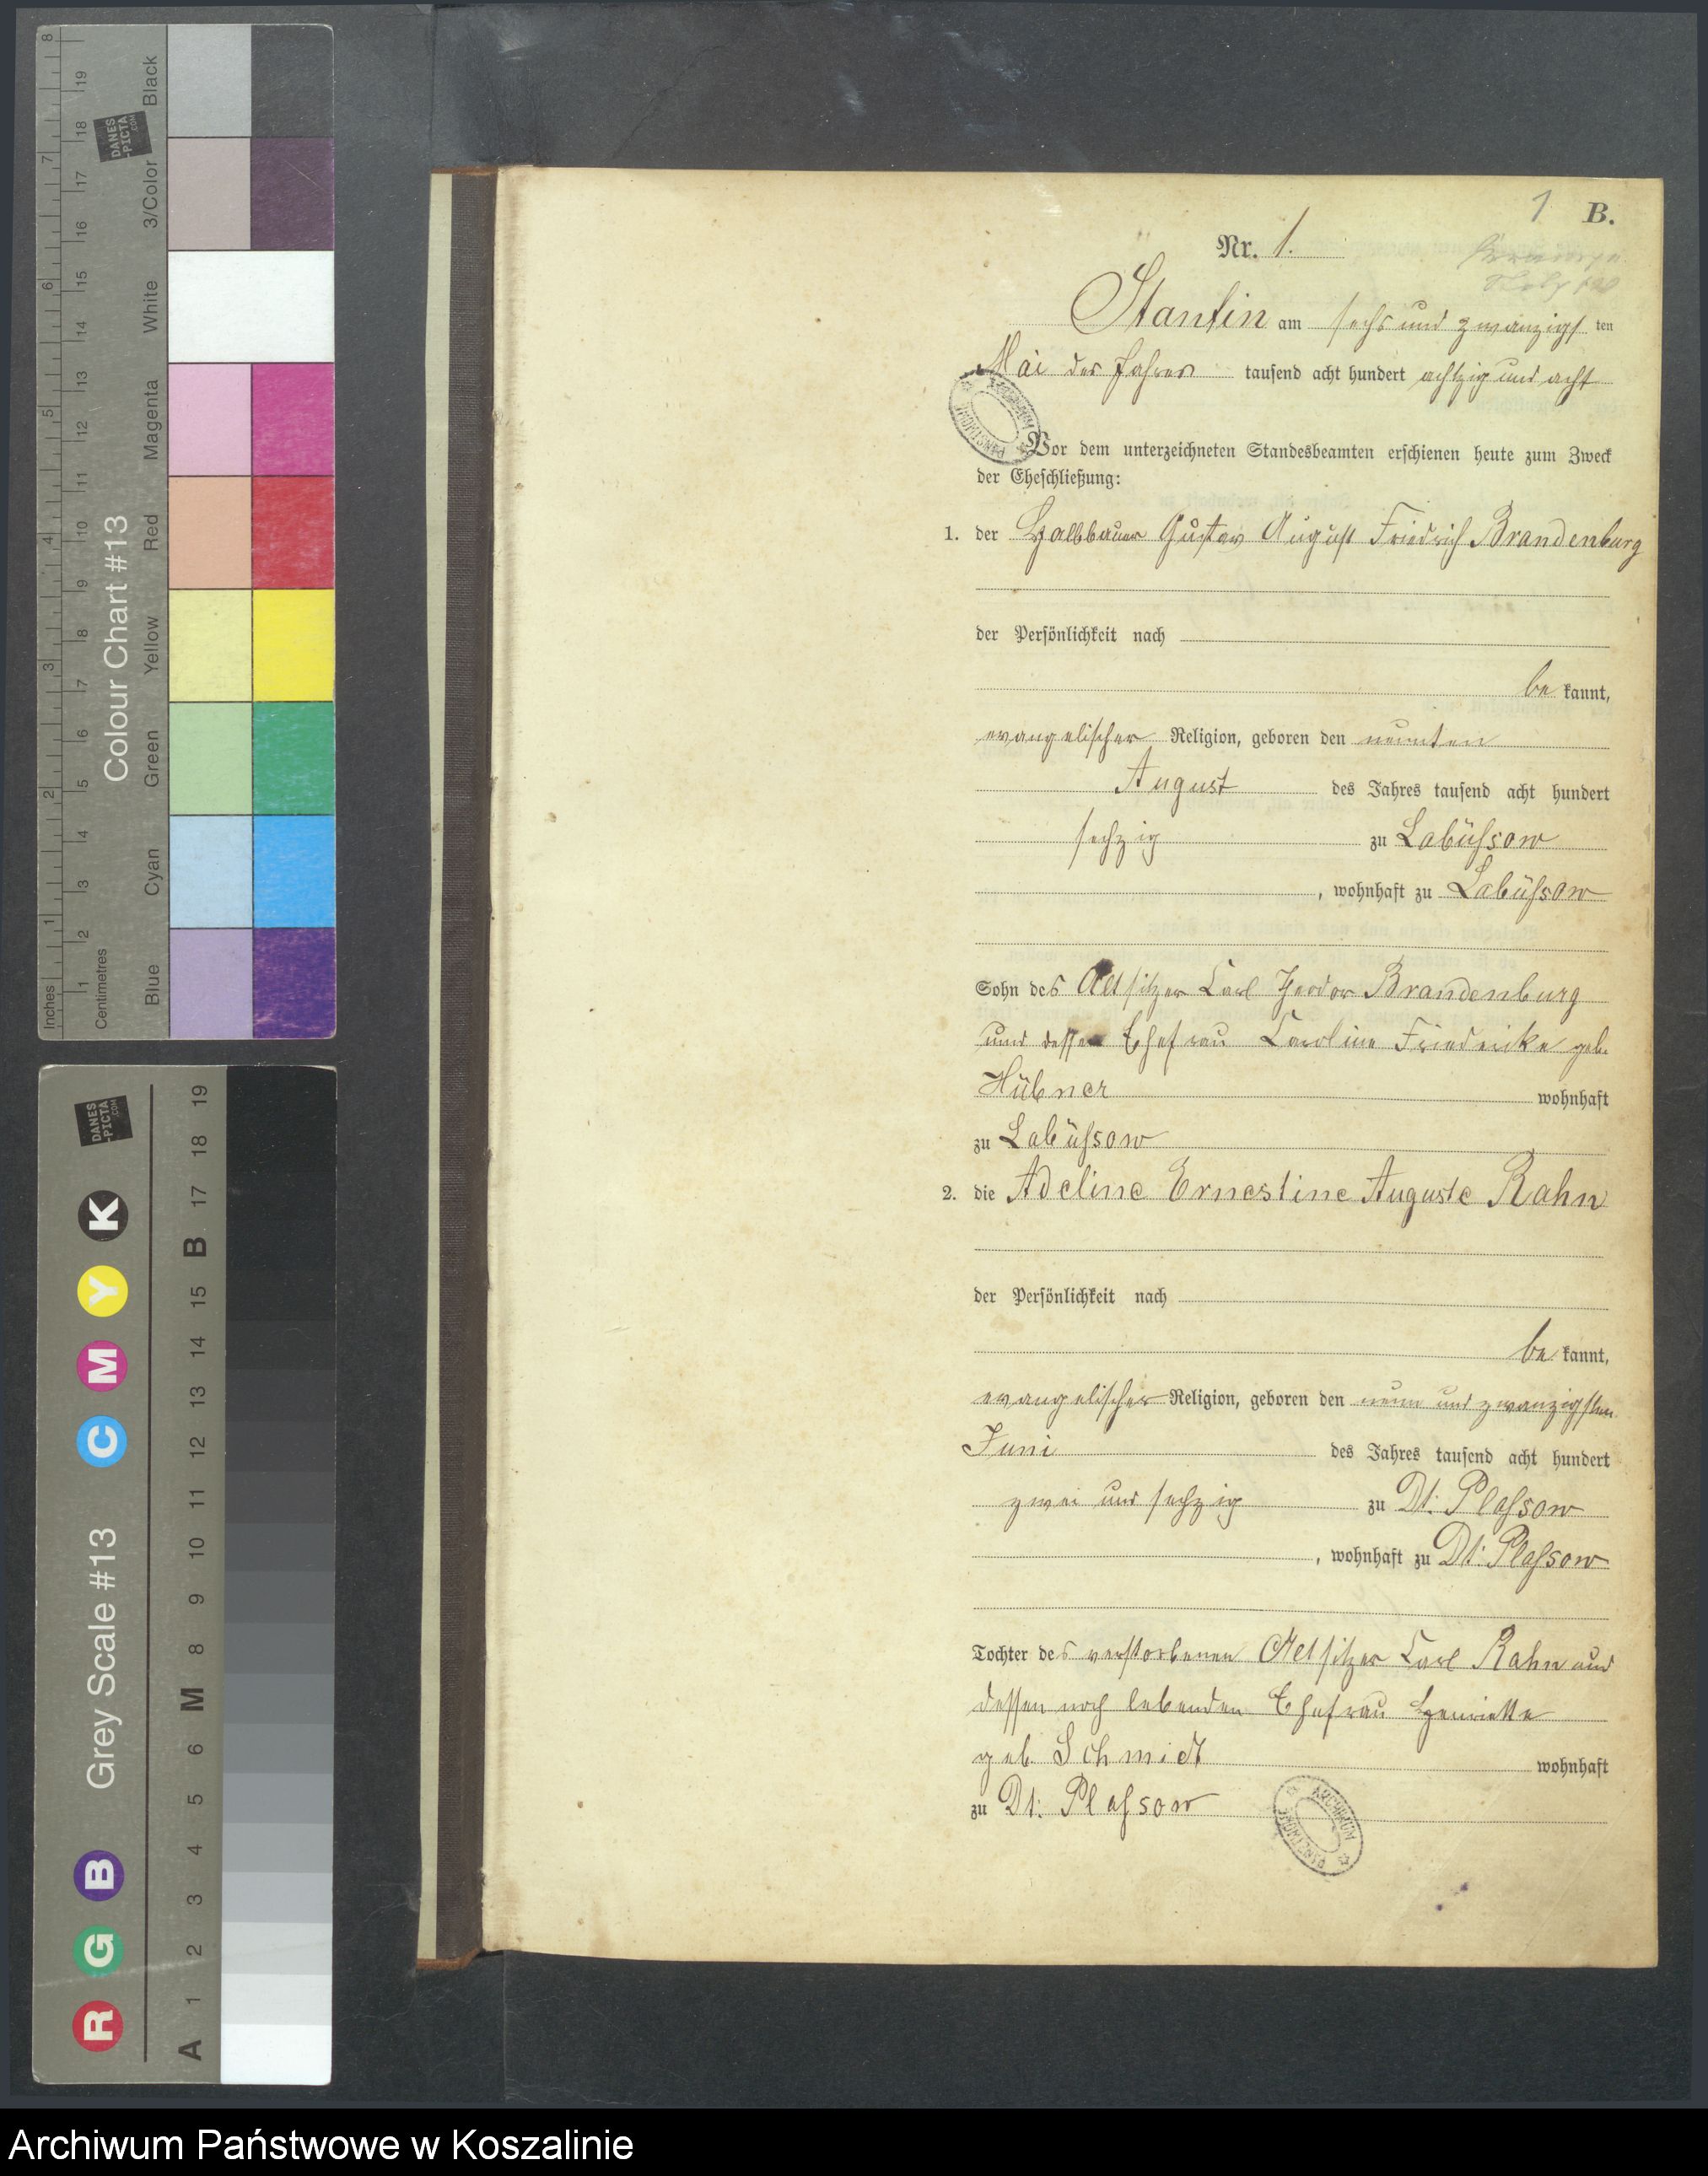 1 B.
Nr. 1.
Stantin am sechs und zwanzigs ten
Mai des Jahres tausend acht hundert achtzig und acht
Vor dem unterzeichneten Standesbeamten erschienen heute zum Zweck
der Eheschließung:
1. der Halbbauer Gustav August Friedrich Brandenburg
der Persönlichkeit nach
be kannt,
evangelischer Religion, geboren den neunten
August des Jahres tausend acht hundert
sechzig zu Labüssow
, wohnhaft zu Labüssow
Sohn des Altsitzer Carl Theodor Brandenburg
und dessen Ehefrau Caroline Friedricke geb.
Hübner wohnhaft
zu Labüssow
2. die Adeline Ernestine Auguste Rahn
der Persönlichkeit nach
be kannt,
evangelischer Religion, geboren den neun und zwanzigsten
Juni des Jahres tausend acht hundert
zwei und sechzig zu Dt: Plassow
, wohnhaft zu Dt: Plassow
Tochter des verstorbenen Altsitzer Carl Rahn und
dessen noch lebenden Ehefrau Henriette
geb. Schmidt wohnhaft
zu Dt: Plassow
ARCHIWUM PAŃSTWOWE
ARCHIWUM PAŃSTWOWE
Inches 1 2 3 4 5 6 7 8
Centimetres 1 2 3 4 5 6 7 8 9 10 11 12 13 14 15 16 17 18 19
Colour Chart #13
Blue Cyan Green Yellow Red Magenta White 3/Color Black
DANES
-PICTA
.COM
Grey Scale #13
R G B C M Y K
A 1 2 3 4 5 6 M 8 9 10 11 12 13 14 15 B 17 18 19
DANES
-PICTA
.COM
Archiwum Państwowe w Koszalinie